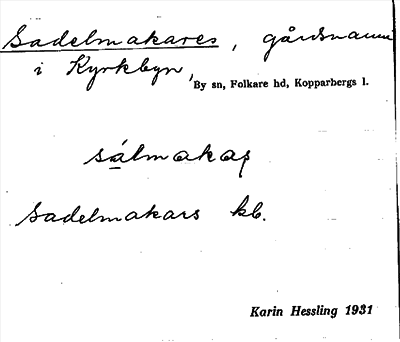 Sadelmakares, gårdsnamn
i Kyrkbyn,
By sn, Folkare hd, Kopparbergs l.
sálmakaş
Sadelmakars kb.
Karin Hessling 1931